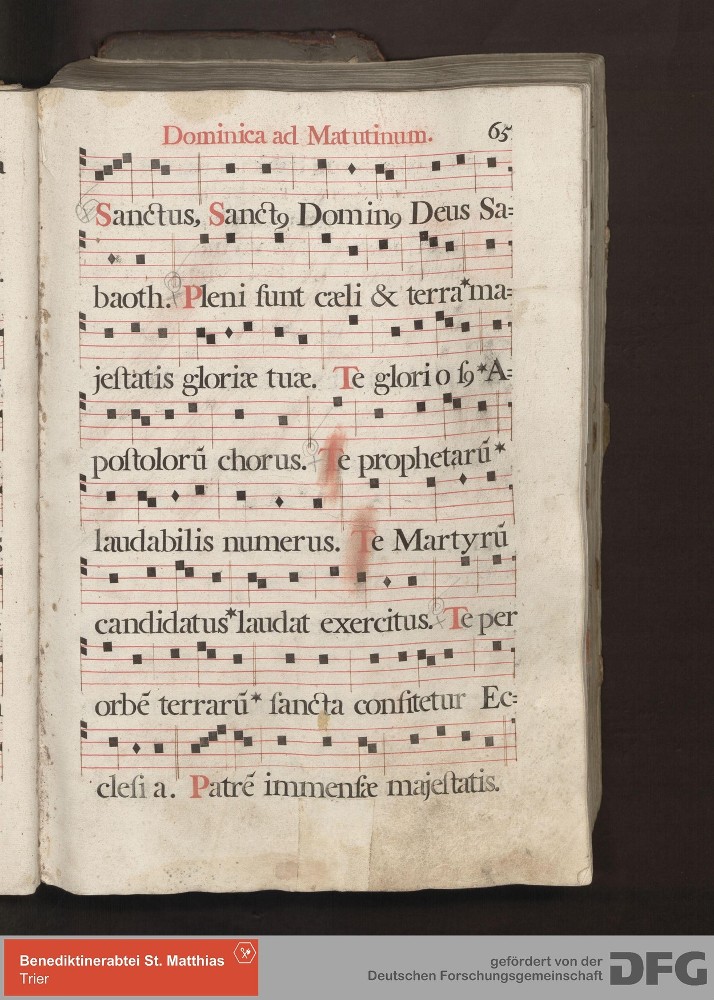 Dominica ad Matutinum. 65
Sanctus, Sanctꝯ Dominꝯ Deus Sa=
baoth. Pleni ſunt cæli & terra*ma=
jeſtatis gloriæ tuæ. Te glorioſꝯ*A=
poſtolorũ chorus. Te prophetarũ*
laudabilis numerus. Te Martyrũ
candidatus*laudat exercitus. Te per
orbẽ terrarũ* ſancta confitetur Ec=
cleſia. Patrẽ immenſæ majeſtatis.
Benediktinerabtei St. Matthias
Trier
gefördert von der
Deutschen Forschungsgemeinschaft
DFG